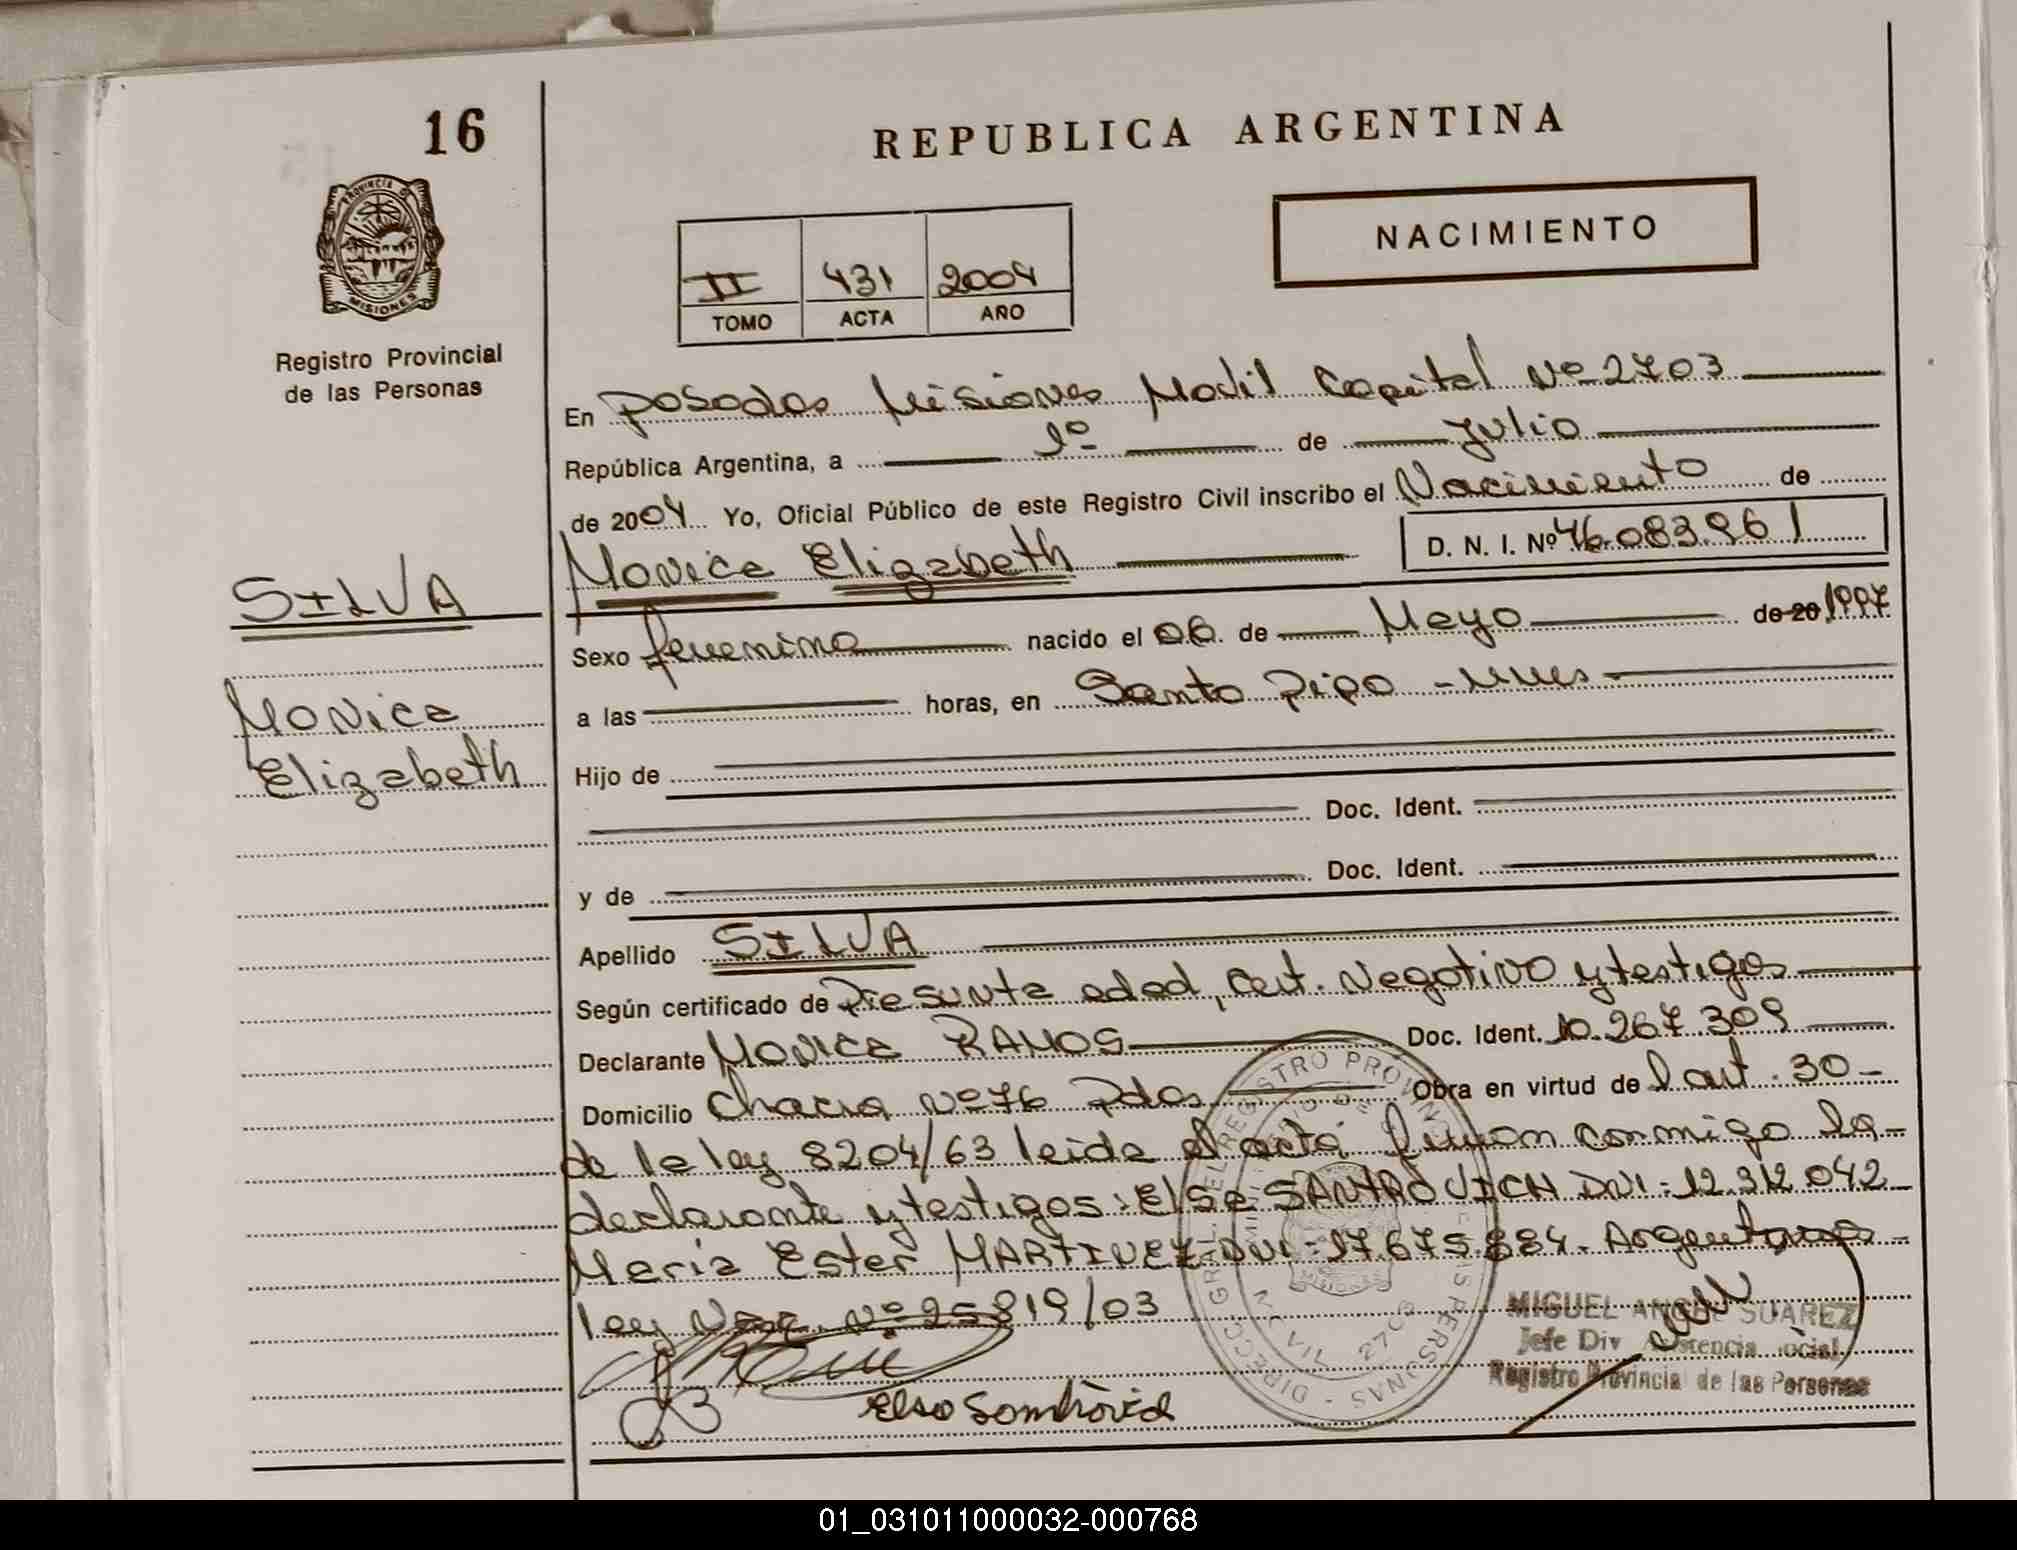 16
REPUBLICA ARGENTINA
NACIMIENTO
PROVINCIA DE
MISIONES
II 431 2004
TOMO ACTA AÑO
Registro Provincial
de las Personas
En Posadas Misiones Movil Capital Nº 2703
República Argentina, a 1º de Julio
de 2004 Yo, Oficial Público de este Registro Civil inscribo el Nacimiento de
Monica Elizabeth D. N. I. Nº 46.083.961
SILVA
Monica
Elizabeth
Sexo femenino nacido el 06 de Mayo de 20 1997
a las horas, en Santo Pipo - Mnes
Hijo de
Doc. Ident.
y de Doc. Ident.
Apellido SILVA
Según certificado de Presunta edad, Cert. Negativo y testigos
Declarante Monica RAMOS Doc. Ident. 10.267.309
Domicilio Chacra Nº 76 Pdas Obra en virtud de l art. 30-
de la ley 8204/63 leida el acta firman conmigo la-
declarante y testigos: Elsa DNI-12.312.042
Maria Ester MARTINEZ DNI-17.675.884. Argentinas-
ley Nac. Nº 25819/03
MIGUEL ANGEL SUAREZ
Jefe Div Asistencia Social
Registro Provincial de las Personas
01_031011000032-000768